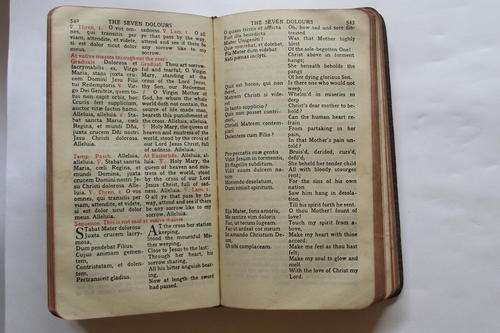 542
THE SEVEN DOLOURS
V. Thren. 1. O vos om-
nes, qui transitis per
viam, attendite, et videte,
si est dolor sicut dolor
meus.
At votive masses throughout the year
Graduale. Dolorosa et
lacrymabilis es, Virgo
Maria, stans juxta cru-
cem Domini Jesu Filii
tui Redemptoris. V. Vir-
go Dei Genitrix, quem to-
tus non capit orbis, hoc
Crucis fert supplicium,
auctor vitæ factus homo.
Alleluia, alleluia. V. Sta-
bat sancta Maria, cœli
Regina, et mundi Dña,
juxta crucem Dñi nostri
Jesu Christi dolorosa.
Alleluia.
Temp. Pasch. Alleluia,
alleluia. V. Stabat sancta
Maria, cœli Regina, et
mundi Domina, juxta
crucem Domini nostri Je-
su Christi dolorosa. Alle-
luia. V. Thren. 1. O vos
omnes, qui transitis per
viam, attendite, et videte,
si est dolor sicut dolor
meus. Alleluia.
Sequence. This is not said at votive masses
Stabat Mater dolorosa
Juxta crucem lacry-
mosa,
Dum pendebat Filius.
Cujus animam gemen-
tem,
Contristatam, et dolen-
tem,
Pertransivit gladius.
V. Lam. 1. O all ye
that pass by the way,
attend and see if there be
any sorrow like to my
sorrow.
Gradual. Thou art sorrow-
ful and tearful, O Virgin
Mary, standing at the
cross of the Lord Jesus,
thy Son, our Redeemer.
V. O Virgin Mother of
God, he whom the whole
world doth not contain, the
source of life made man,
beareth this punishment of
the cross. Alleluia, alleluia.
V. Holy Mary, the queen of
heaven and mistress of the
world, stood by the cross of
our Lord Jesus Christ, full
of sadness. Alleluia.
At Eastertide. Alleluia, al-
leluia. V. Holy Mary, the
queen of heaven and mis-
tress of the world, stood
by the cross of our Lord
Jesus Christ, full of sad-
ness. Alleluia. V. Lam. 1.
O all ye that pass by the
way, attend and see if there
be any sorrow like to my
sorrow. Alleluia.
At the cross her station
keeping,
Stood the mournful Mo-
ther weeping,
Close to Jesus to the last:
Through her heart, his
sorrow sharing,
All his bitter anguish bear-
ing,
Now at length the sword
had passed.
THE SEVEN DOLOURS
543
O quam tristis et afflicta
Fuit illa benedicta
Mater Unigeniti!
Quæ mœrebat, et dolebat,
Pia Mater dum videbat
Nati pœnas inclyti.
Quis est homo, qui non
fleret,
Matrem Christi si vide-
ret
In tanto supplicio?
Quis non posset contri-
stari,
Christi Matrem contem-
plari
Dolentem cum Filio?
Pro peccatis suæ gentis
Vidit Jesum in tormentis,
Et flagellis subditum.
Vidit suum dulcem na-
tum
Moriendo desolatum,
Dum emisit spiritum.
Eja Mater, fons amoris,
Me sentire vim doloris
Fac, ut tecum lugeam.
Fac ut ardeat cor meum
In amando Christum De-
um,
Ut sibi complaceam.
Oh, how sad and sore dis-
tressed
Was that Mother highly
blest
Of the sole-begotten One!
Christ above in torment
hangs;
She beneath beholds the
pangs
Of her dying glorious Son.
Is there one who would not
weep,
Whelm'd in miseries so
deep
Christ's dear mother to be-
hold?
Can the human heart re-
frain
From partaking in her
pain,
In that Mother's pain un-
told?
Bruis'd, derided, curs'd,
defil'd,
She beheld her tender child
All with bloody scourges
rent;
For the sins of his own
nation
Saw him hang in desola-
tion,
Till his spirit forth he sent.
O thou Mother! fount of
love!
Touch my spirit from a-
bove,
Make my heart with thine
accord:
Make me feel as thou hast
felt;
Make my soul to glow and
melt
With the love of Christ my
Lord.